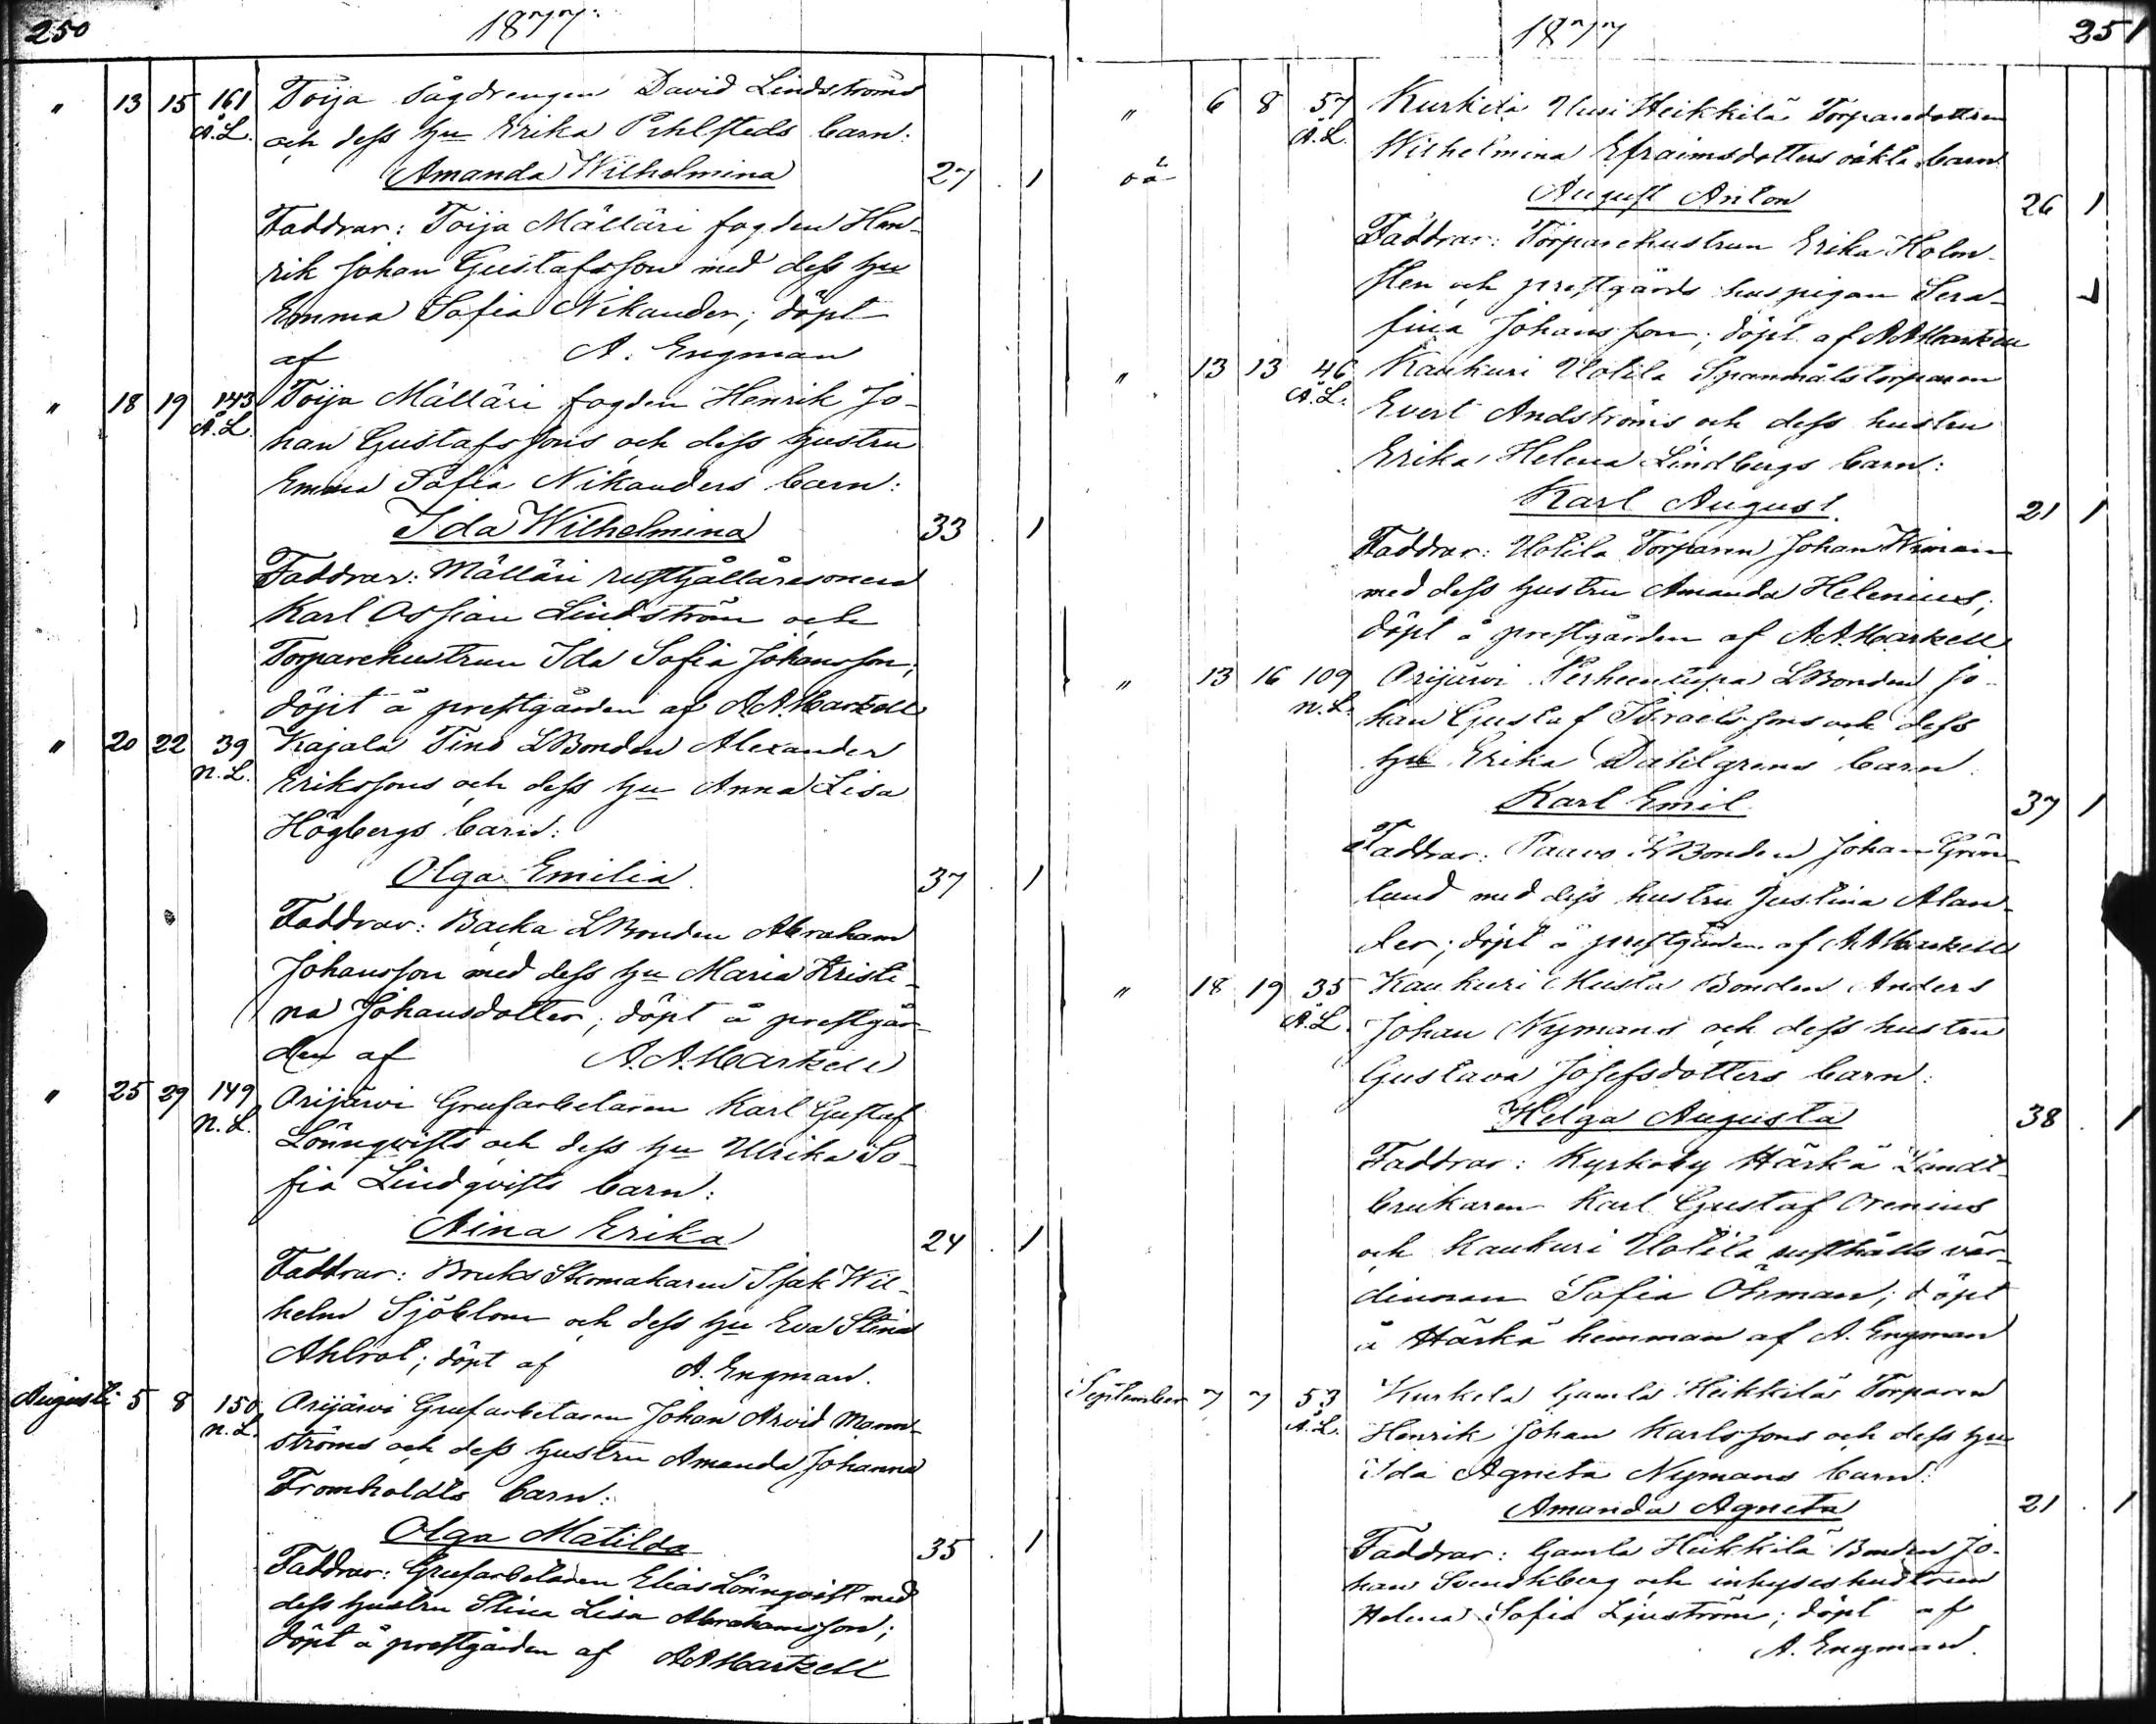 250 1877.
" 13 15 161 Toija Sågdrengen David Lindströms
Å.L. och dess hu Erika Pihlsteds barn:
Amanda Wilhelmina 27 1
Faddrar: Toija Mälläri fogden Hen-
rik Johan Gustafsson med dess hu
Emma Sofia Nikander; döpt
af A. Engman
" 18 19 143 Toija Mälläri fogden Henrik Jo-
Å.L. han Gustafssons och dess hustru
Emma Sofia Nikanders barn:
Ida Wilhelmina 33 1
Faddrar: Mälläri rusthållaresonen
Karl Ossian Lindström och
Torparehustrun Ida Sofia Johansson;
döpt å prestgården af A.A. Markell
" 20 22 39 Kajala Tino LBonden Alexander
N.L. Erikssons och dess hu Anna Lisa
Högbergs barn:
Olga Emilia 37 1
Faddrar: Backa LBonden Abraham
Johansson med dess hu Maria Kristi-
na Johansdotter; döpt å prestgår-
den af A.A. Markell
" 25 29 149 Orijärvi Grufarbetaren Karl Gustaf
N.L. Lönnqvists och dess hu Ulrika So-
fia Lindqvists barn:
Aina Erika 24 1
Faddrar: Bruks Skomakaren Isak Wil-
helm Sjöblom och dess hu Eva Stina
Ahlrot; döpt af A. Engman.
Augusti 5 8 150 Orijärvi Grufarbetaren Johan Arvid Mann-
N.L. ströms och dess hustru Amanda Johanna
Fromholdts barn:
Olga Matilda 35 1
Faddrar: Grufarbetaren Elias Lönnqvist med
dess hustru Stina Lisa Abrahamsson;
döpt å prestgården af A.A. Markell
1877 251
" 6 8 57 Kurkela Uusi Heikkilä Torparedottren
Å.L. Wilhelmina Efraimsdotters oäkta barn
oä
August Anton 26 1
Faddrar: Torparehustrun Erika Holm-
sten och prestgårds huspigan Sera-
fina Johansson; döpt af A.A. Markell
" 13 13 46 Kaukuri Uotila Spannmålstorparen
Å.L. Evert Andströms och dess hustru
Erika Helena Lindbergs barn:
Karl August. 21 1
Faddrar: Uotila Torparen Johan Wiman
med dess hustru Amanda Helenius;
döpt å prestgården af A.A. Markell
" 13 16 109 Orijärvi Perheentupa LBonden Jo-
N.L. han Gustaf Israelssons och dess
hu Erika Dahlgrens barn:
Karl Emil 37 1
Faddrar: Paavo LBonden Johan Grön-
lund med dess hustru Justina Alan-
der; döpt å prestgården af A.A. Markell
" 18 19 35 Kaukuri Musta Bonden Anders
Å.L. Johan Nymans och dess hustru
Gustava Josefsdotters barn:
Helga Augusta 38 1
Faddrar: Kyrkoby Härkä Landt-
brukaren Karl Gustaf Orenius
och Kaukuri Uotila rusthålls vär-
dinnan Sofia Öhman; döpt
å Härkä hemman af A. Engman
September 7 7 53 Kurkela Gamla Heikkilä Torparen
Å.L. Henrik Johan Karlssons och dess hu
Ida Agneta Nymans barn:
Amanda Agneta 21 1
Faddrar: Gamla Heikkilä Bonden Jo-
han Svendkberg och inhyseshustrun
Helena Sofia Ljuström; döpt af
A. Engman.